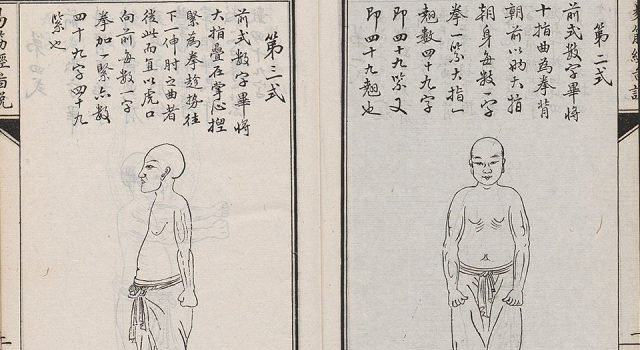 第二式
前式数字畢將
十指曲為拳背
朝前以兩大指
朝身每数一字
拳一緊大指一
翹数四十九字
即四十九緊又
即四十九翹也
第三式
前式数字畢將
大指疊在掌心捏
緊為拳趁勢往
下一伸肘之曲者
從此而直以虎口
向前每数一字
拳加一緊亦数
四十九字四十九
緊也
易筋經圖説